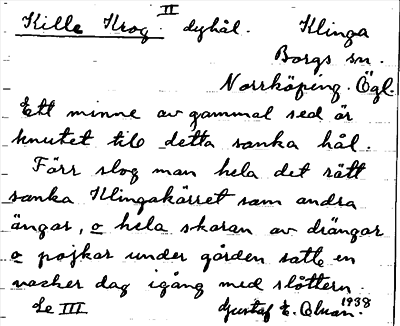 II
Kille Krog. dyhål. Klinga
Borgs sn.
Norrköping. Ögl.
Ett minne av gammal sed är
knutet till detta sanka hål.
Förr slog man hela det rätt
sanka Klingakärret som andra
ängar, o hela skaran av drängar
o pojkar under gården satte en
vacker dag igång med slåttern.
Se III Gustaf E. 1938.